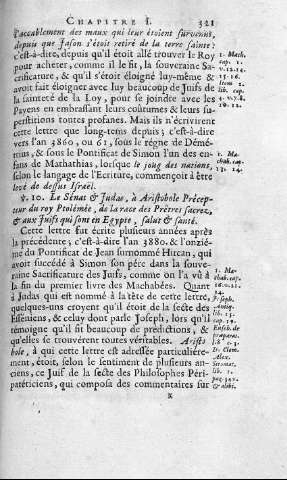 CHAPITRE I. 321
l'accablement des maux qui leur étoient survenus,
depuis que Jason s'étoit retiré de la terre sainte:
c'est-à-dire, depuis qu'il étoit allé trouver le Roy
pour acheter, comme il le fit, la souveraine Sa-
crificature, & qu'il s'étoit éloigné luy-même &
avoit fait éloigner avec luy beaucoup de Juifs de
la sainteté de la Loy, pour se joindre avec les
Payens en embrassant leurs coûtumes & leurs su-
perstitions toutes profanes. Mais ils n'écrivirent
cette lettre que long-tems depuis; c'est-à-dire
vers l'an 3860, ou 61, sous le régne de Démé-
trius, & sous le Pontificat de Simon l'un des en-
fans de Mathathias, lorsque le joug des nations,
selon le langage de l'Ecriture, commençoit à être
levé de dessus Israël.
℣. 10. Le Sénat & Judas, à Aristobole Précep-
teur du roy Ptolémée, de la race des Prêtres sacrez,
& aux Juifs qui sont en Egypte, salut & santé.
Cette lettre fut écrite plusieurs années après
la précédente; c'est-à-dire l'an 3880. & l'onzié-
me du Pontificat de Jean surnommé Hircan, qui
avoit succedé à Simon son pére dans la souve-
raine Sacrificature des Juifs, comme on l'a vû à
la fin du premier livre des Machabées. Quant
à Judas qui est nommé à la tête de cette lettre,
quelques-uns croyent qu'il étoit de la secte des
Esséniens, & celuy dont parle Joseph, lors qu'il
témoigne qu'il fit beaucoup de prédictions, &
qu'elles se trouvérent toutes véritables. Aristo-
bole, à qui cette lettre est adressée particuliére-
ment, étoit, selon le sentiment de plusieurs an-
ciens, ce Juif de la secte des Philosophes Péri-
patéticiens, qui composa des commentaires sur
X
1. Mach.
cap. 1.
v. 12. 14.
15. 16.
Idem
2. lib.
cap.
4. v. 7. 8.
19. 12.
1. Ma-
chab. cap.
13.
1. Ma-
chab. cap.
16. v. 21.
24.
Joseph.
Antiq.
lib. 13.
cap. 19.
Euseb. de
præparat.
l. 8. c. 3.
D. Clem.
Alex.
Stromat.
lib. 1.
pag. 305.
& alibi.